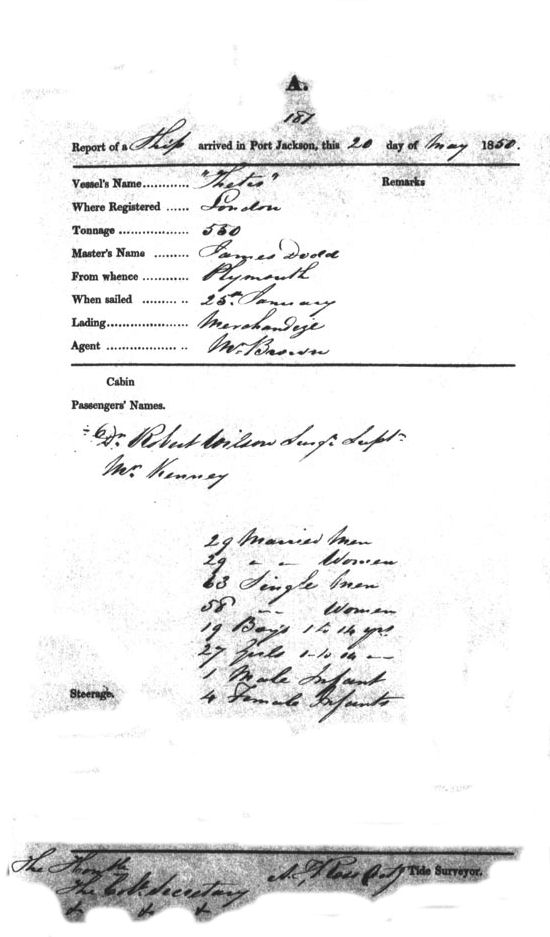 A.
181
Report of a Ship arrived in Port Jackson, this 20 day of May 1850.
Vessel's Name............ "Thetis" Remarks
Where Registered ...... London
Tonnage .................. 550
Master's Name ......... James Dodd
From whence ............ Plymouth
When sailed ......... .. 25th January
Lading..................... Merchandize
Agent .................. .. Mr. Brown
Cabin
Passengers' Names.
Dr. Robert Wilson Surgn. Supt.
Mr. Kenney
29 Married Men
29 " " Women
63 Single Men
58 " " Women
19 Boys 1 to 14 yrs
27 Girls 1 to 14 "
1 Male Infant
Steerage. 4 Female Infants
The Honble
The Col. Secretary
Tide Surveyor.